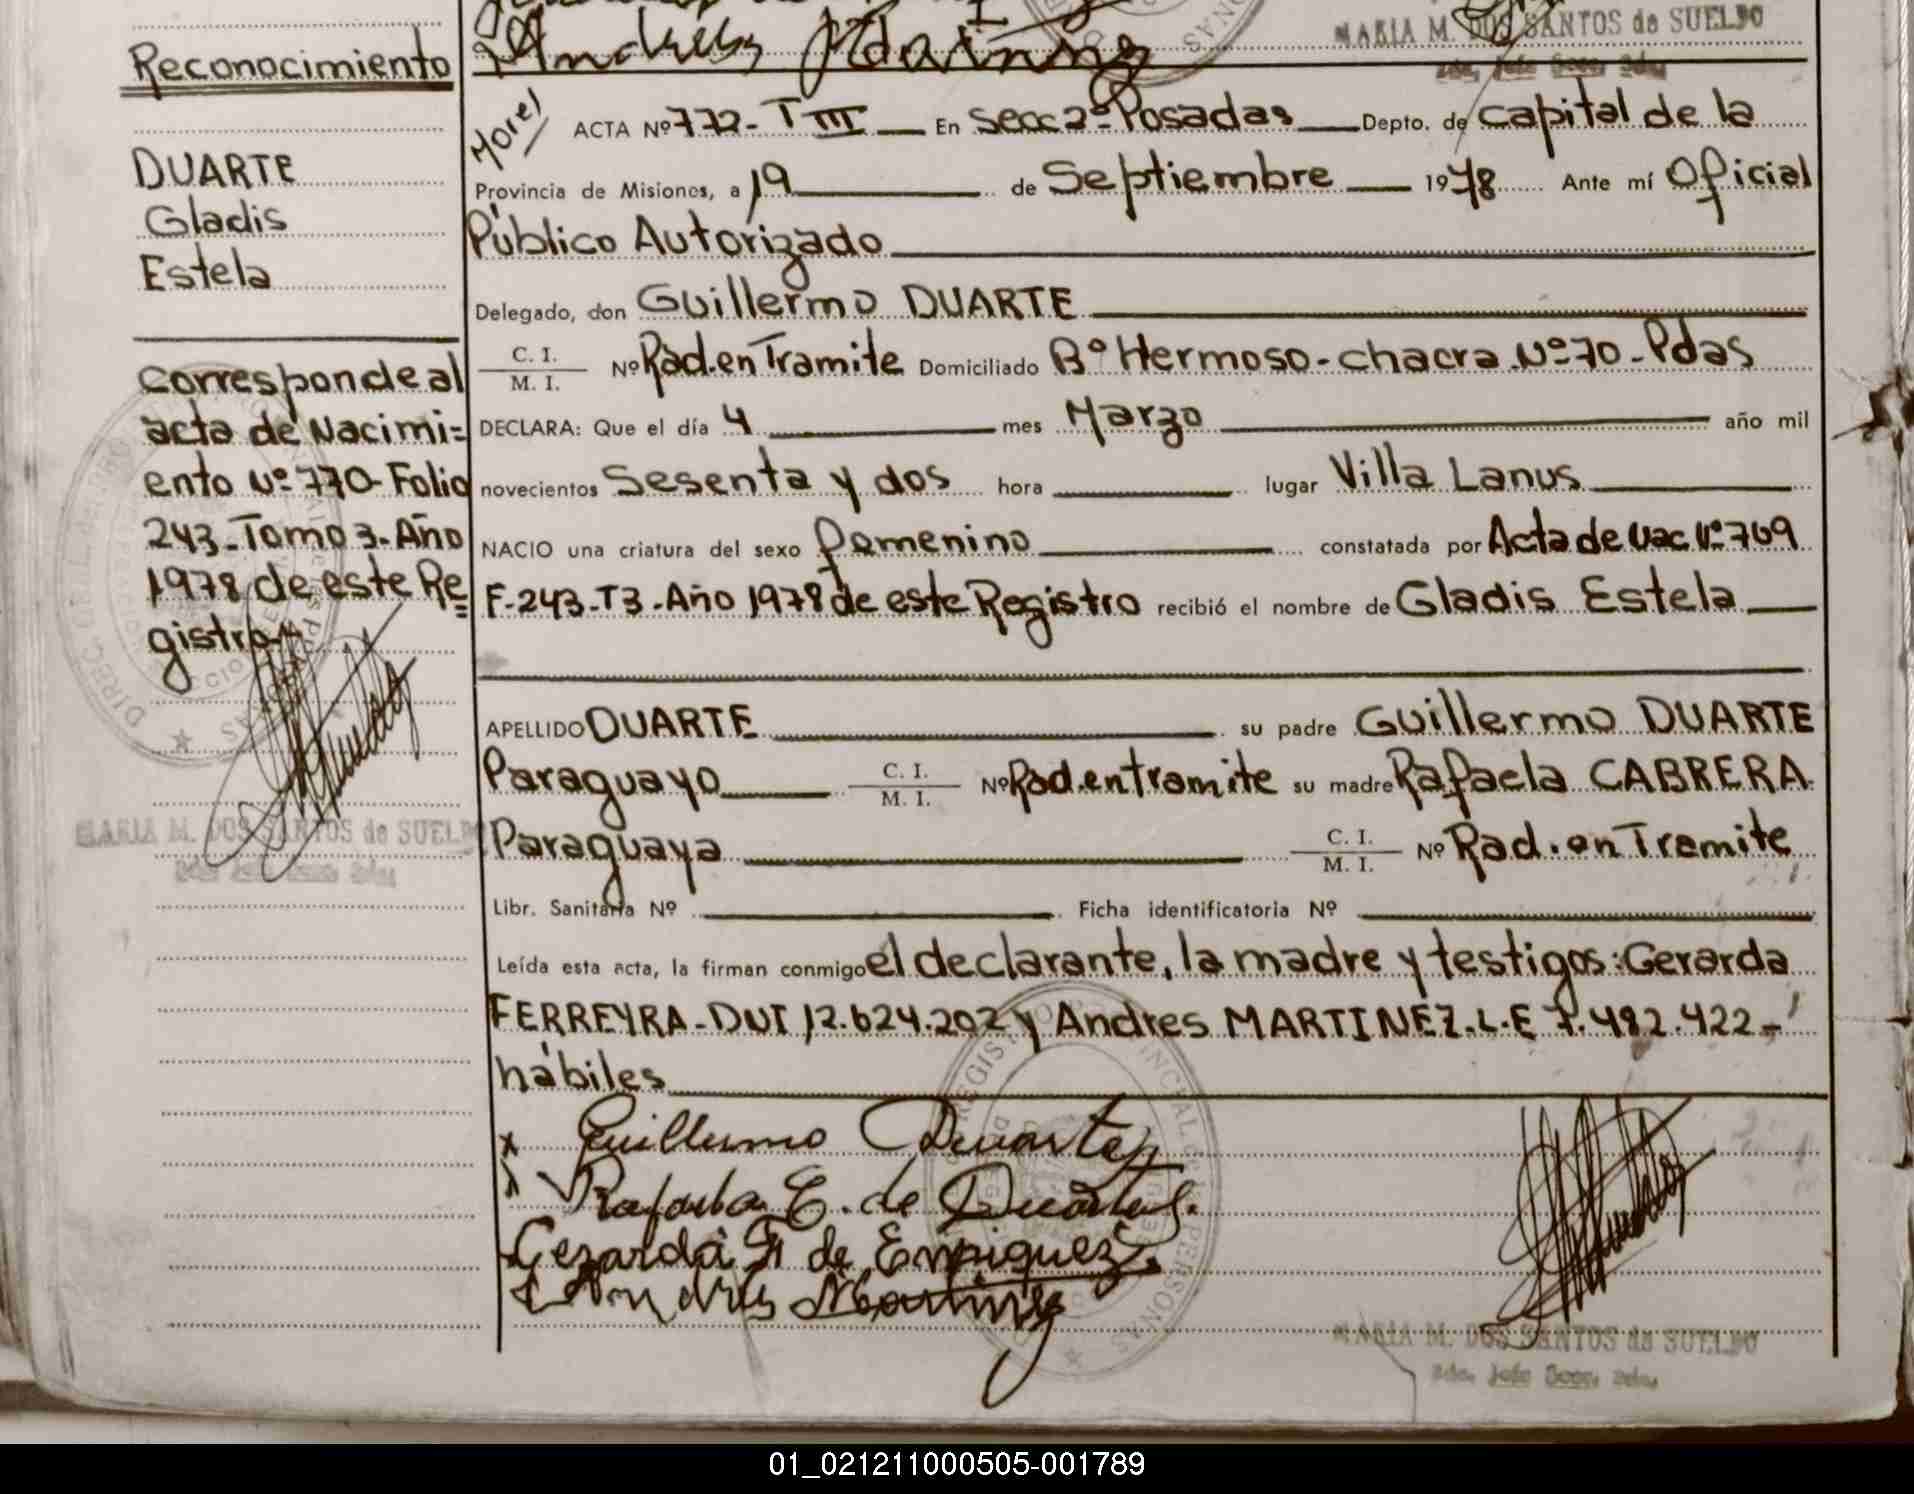 Reconocimiento
DUARTE
Gladis
Estela
Corresponde al
acta de Nacimi=
ento Nº 770-Folio
243-Tomo 3-Año
1978 de este Re=
gistro
MARIA M. DOS SANTOS de SUELDO
MARIA M. DOS SANTOS de SUELDO
Morel
ACTA Nº 772-T III En Secc 2º-Posadas Depto. de Capital de la
Provincia de Misiones, a 19 de Septiembre 1978 Ante mí Oficial
Público Autorizado
Delegado, don Guillermo DUARTE
C. I.
M. I. Nº Rad.en Tramite Domiciliado Bº Hermoso-chacra.Nº70-Pdas
DECLARA: Que el día 4 mes Marzo año mil
novecientos Sesenta y dos hora lugar Villa Lanus
NACIO una criatura del sexo femenino constatada por Acta de Nac Nº769
F-243-T3-Año 1978 de este Registro recibió el nombre de Gladis Estela
APELLIDO DUARTE su padre Guillermo DUARTE
Paraguayo C. I.
M. I. Nº Rad.en tramite su madre Rafaela CABRERA
Paraguaya C. I.
M. I. Nº Rad.en Tramite
Libr. Sanitaria Nº Ficha identificatoria Nº
Leída esta acta, la firman conmigo el declarante, la madre y testigos: Gerarda
FERREYRA-DNI 12.624.202 y Andres MARTINEZ.L.E 7.482.422-
hábiles
Guillermo Duarte
Rafaela C. de Duarte
Gerarda F. de Enriquez
Andres Martinez
MARIA M. DOS SANTOS de SUELDO
01_021211000505-001789